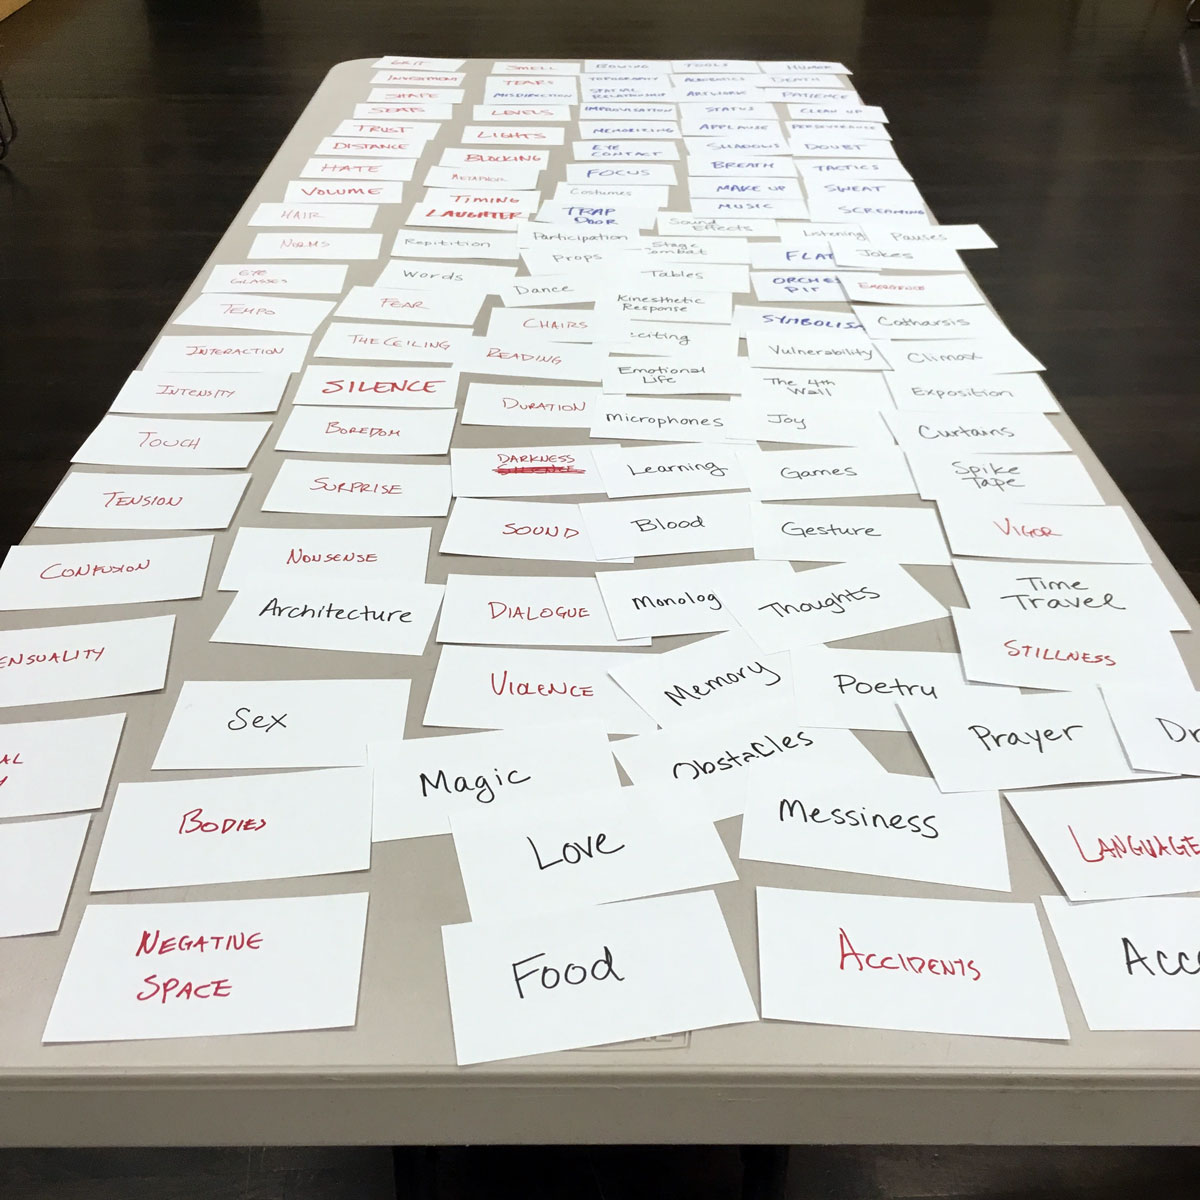 GRIT
SMELL
BOWING
TOOLS
HUMOR
INVESTMENT
TEARS
TOPOGRAPHY
AEROBATICS
DEATH
SHAPE
MISDIRECTION
SPATIAL
RELATIONSHIP
ARTWORK
PATIENCE
SEATS
LEVELS
IMPROVISATION
STATUS
CLEAN UP
TRUST
LIGHTS
MEMORIZING
APPLAUSE
PERSEVERANCE
DISTANCE
BLOCKING
EYE
CONTACT
SHADOWS
DOUBT
HATE
METAPHOR
FOCUS
BREATH
TACTICS
VOLUME
TIMING
Costumes
MAKE UP
SWEAT
HAIR
LAUGHTER
TRAP
DOOR
MUSIC
SCREAMING
NORMS
Repitition
Participation
Sound
Effects
Listening
Pauses
EYE
GLASSES
Words
Props
Stage
Combat
FLAT
Jokes
TEMPO
FEAR
Dance
Tables
ORCHES
PIT
EMERGENCE
INTERACTION
THE CEILING
CHAIRS
Kinesthetic
Response
SYMBOLISM
Catharsis
INTENSITY
SILENCE
READING
citing
Vulnerability
Climax
TOUCH
BOREDOM
DURATION
Emotional
Life
The 4th
Wall
Exposition
TENSION
SURPRISE
DARKNESS
Microphones
Joy
Curtains
CONFUSION
NONSENSE
SOUND
Learning
Games
Spike
Tape
ENSUALITY
Architecture
DIALOGUE
Blood
Gesture
VIGOR
AL
Y
Sex
VIOLENCE
Monolog
Thoughts
Time
Travel
BODIES
Magic
Memory
Poetry
STILLNESS
NEGATIVE
SPACE
Love
Obstacles
Prayer
Dr
Food
Messiness
LANGUAGE
ACCIDENTS
Acc